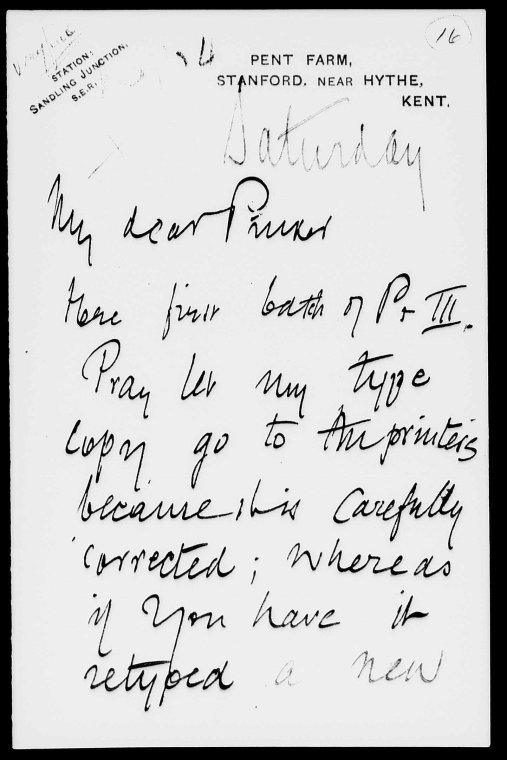 16
STATION:
SANDLING JUNCTION,
S.E.R.
PENT FARM,
STANFORD. NEAR HYTHE,
KENT.
Saturday
My dear Pinker
Here first batch of Pt III.
Pray let my type
copy go to Am printers
because it is carefully
corrected; whereas
if you have it
retyped a new